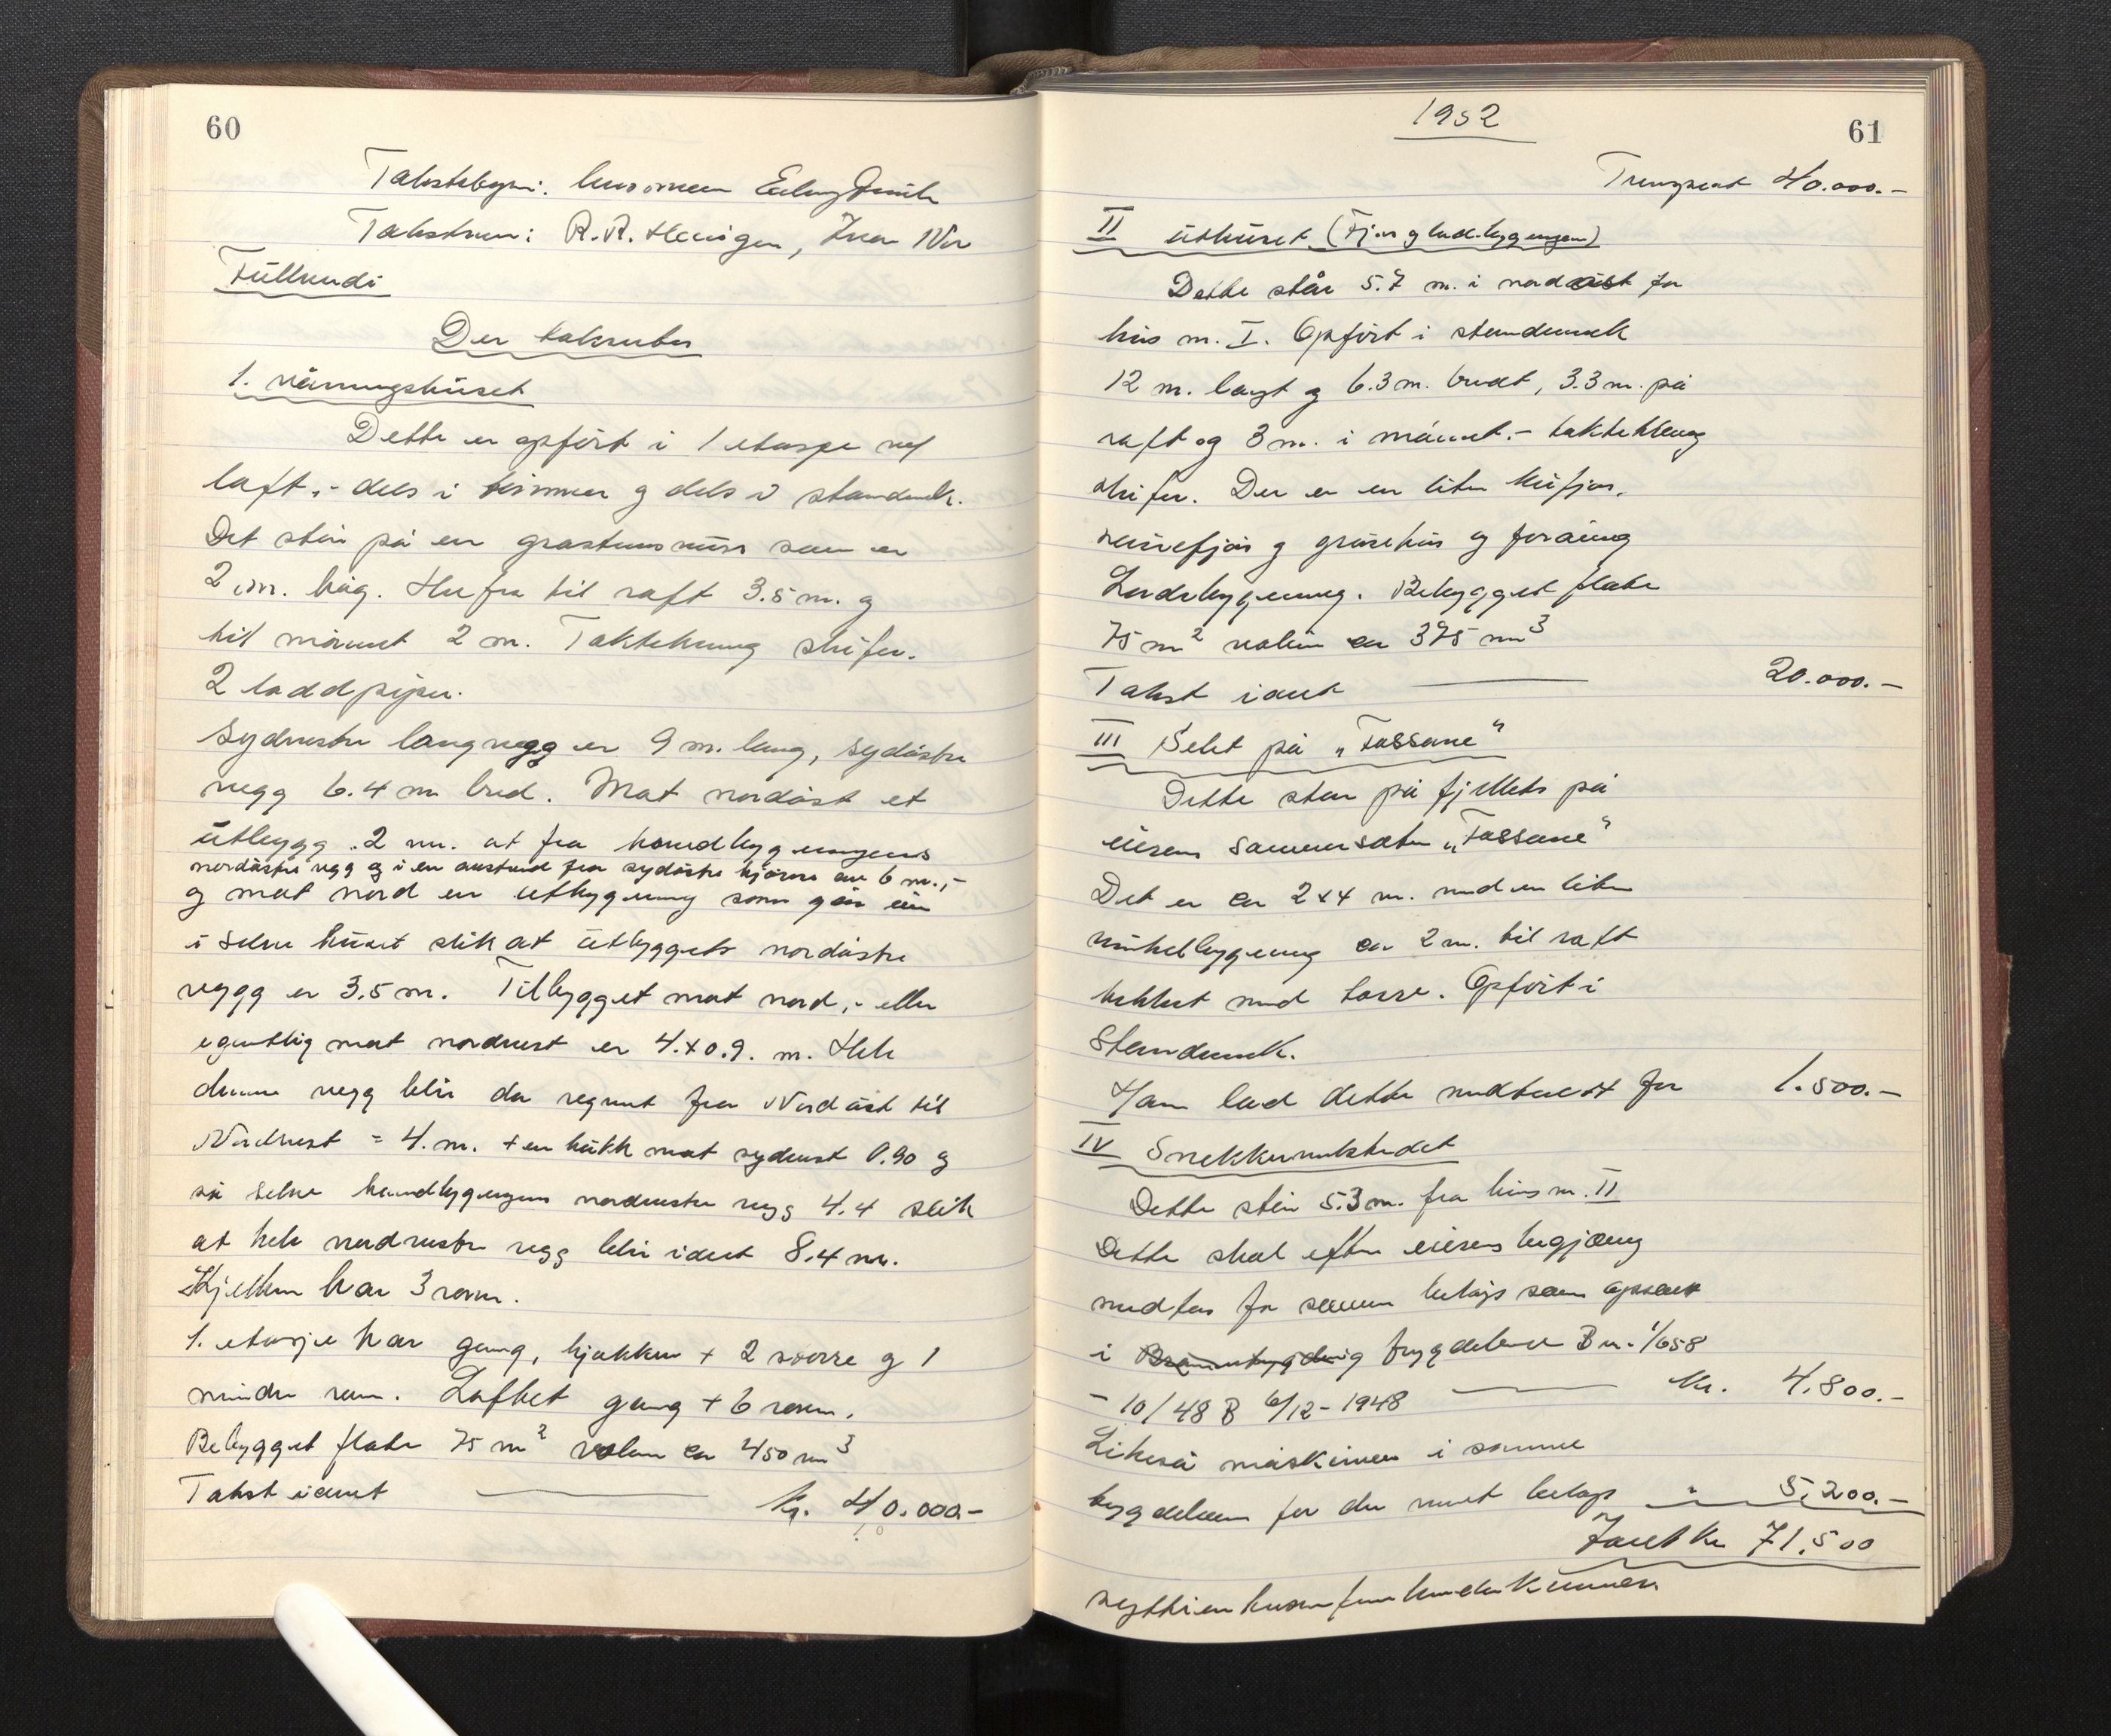 60
Takstbegjær: husmann
Takstmenn: R. R.
Fullendi
Der takseres
1. våningshuset
Dette er opført i 1 etasje m/
loft, - dels i tømmer og dels i standverk.
Det står på en grastensmur som er
2 m. høg. Herfra til raft 3.5 m. og
til mønnet 2 m. Taktekning skifer.
2 laddpiper.
Sydvestre langvegg er 9 m. lang, sydøstre
vegg 6.4 m bred. Mot nordøst et
utbygg 2 m. ut fra hovedbygningens
nordøstre vegg og i en avstand fra sydøstre hjørne av 6 m., -
og mot nord en utbygning som går inn
i selve huset slik at utbyggets nordøstre
vegg er 3.5 m. Tilbygget mot nord, - eller
egentlig mot nordvest er 4.x0.9. m. Hele
denne vegg blir da regnet fra Nordøst til
Nordvest = 4. m. + en kukk mot sydvest 0.90 og
så selve hovedbygningens nordvestre vegg 4.4 slik
at hele nordvestre vegg blir idet 8.4 m.
Kjelleren har 3 rom.
1. etasje har gang, kjøkken + 2 større og 1
mindre rom. Loftet gang + 6 rom.
Bebygget flate 75 m² volum ca 450 m³
Takst iamt kr. 40.000.-
1952
61
Transport 40.000.-
II uthuset (Fjøs og ladebygningen)
Dette står 5.7 m. i nordøst for
hus nr. I. Opført i standverk
12 m. langt og 6.3 m. bredt, 3.3 m. på
raft og 3 m. i mønnet. - taktekking
skifer. Der er en liten kufjøs,
sauefjøs og grisehus og foráning
Ladebygning. Bebygget flate
75 m² volum ca 375 m³
Takst iamt 20.000.-
III Selet på „Fossane"
Dette står på fjellets på
eierens sommersæter „Fossane"
Det er ca 2x4 m. med en liten
vinkelbygning ca 2 m. til raft
tekket med torve. Opført i
Standverk.
Han lod dette medtaest for 1.500.-
IV Snekkerverkstedet
Dette står 5.3 m. fra hus nr. II
Dette skal efter eierens begjæring
medtas for samme beløp som opsatt
i Brannbygdning bygdebrev B nr. 1/658
- 10/48 B 6/12-1948 kr. 4.800.-
Likeså maskiner i samme
bygdebrev for der nevnt beløp " 5.200.-
Iamt kr 71.500
syttien tusen fem hundre kroner.